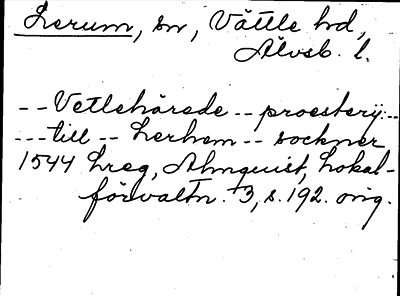 Lerum, sn, Vättle hd,
Älvsb. l.
-- Vetlehårede -- proesterij --
--- till -- Lerhem -- sockner
1544 hreg, Almquist, Lokal-
förvaltn. 3, s. 192. orig.